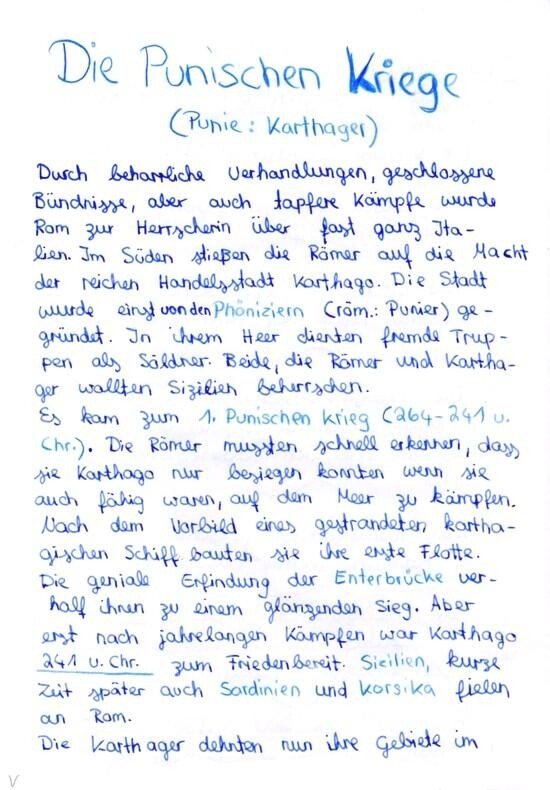 Die Punischen Kriege
(Punie: Karthager)
Durch beharrliche Verhandlungen, geschlossene
Bündnisse, aber auch tapfere Kämpfe wurde
Rom zur Herrscherin über fast ganz Ita-
lien. Im Süden stießen die Römer auf die Macht
der reichen Handelsstadt Karthago. Die Stadt
wurde einst von den Phöniziern (röm.: Punier) ge-
gründet. In ihrem Heer dienten fremde Trup-
pen als Söldner. Beide, die Römer und Kartha-
ger wollten Sizilien beherrschen.
Es kam zum 1. Punischen Krieg (264-241 v.
Chr.). Die Römer mussten schnell erkennen, dass
sie Karthago nur besiegen konnten wenn sie
auch fähig waren, auf dem Meer zu kämpfen.
Nach dem Vorbild eines gestrandeten kartha-
gischen Schiff bauten sie ihre erste Flotte.
Die geniale Erfindung der Enterbrücke ver-
half ihnen zu einem glänzenden Sieg. Aber
erst nach jahrelangen Kämpfen war Karthago
241 v. Chr. zum Frieden bereit. Sicilien, kurze
Zeit später auch Sardinien und Korsika fielen
an Rom.
Die Karthager dehnten nun ihre Gebiete im
V